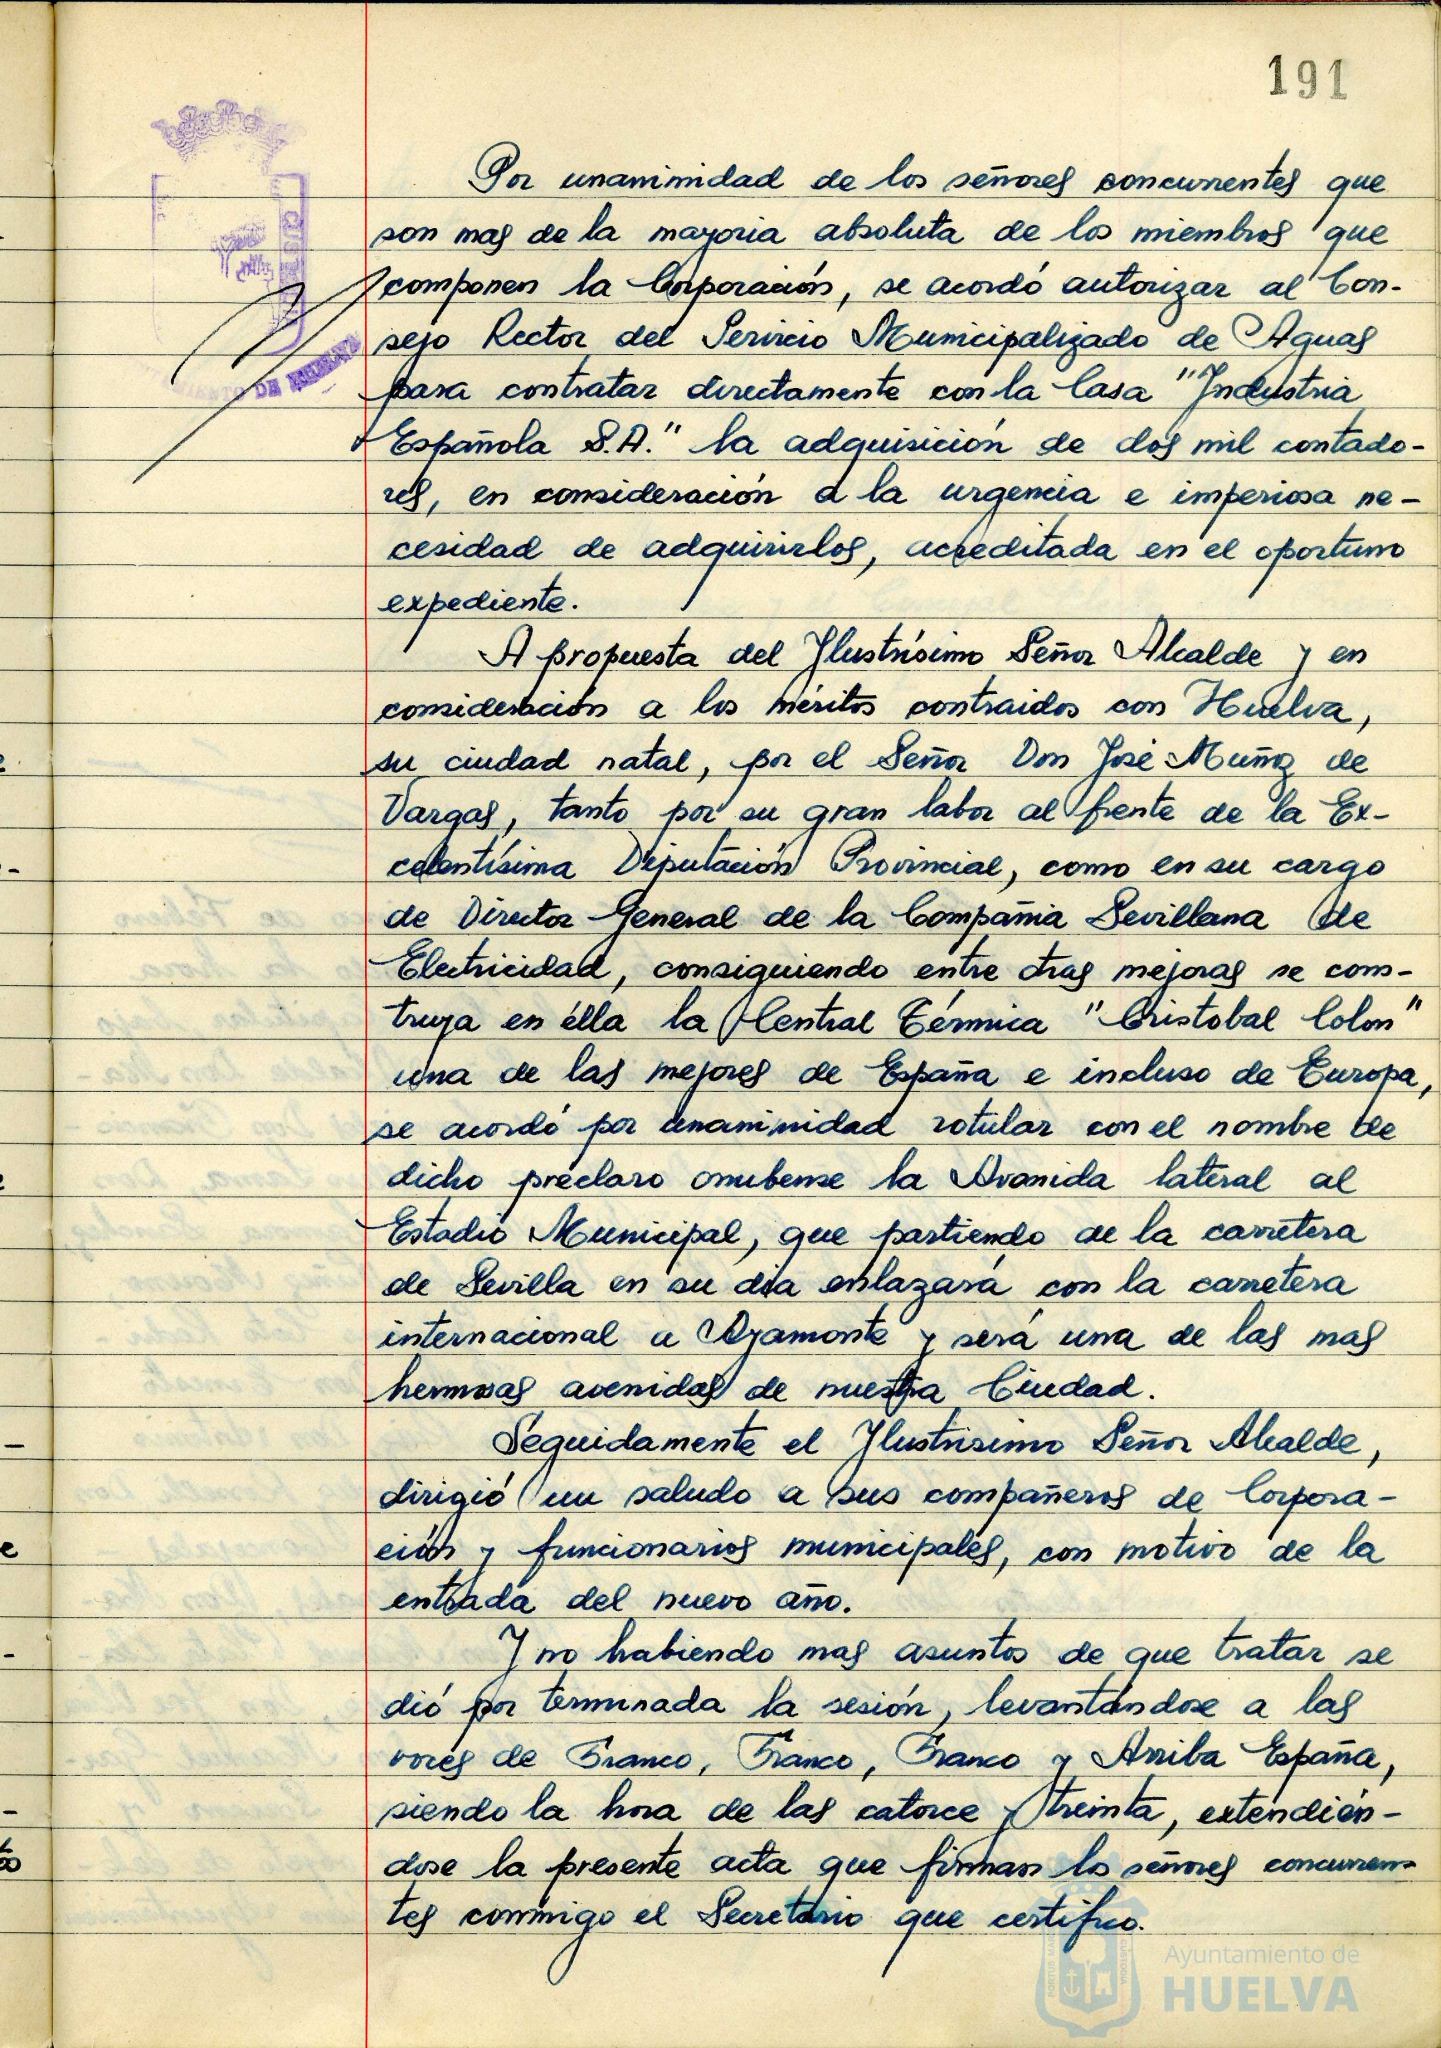 191
Por unanimidad de los señores concurrentes que
son mas de la mayoria absoluta de los miembros que
componen la Corporación, se acordó autorizar al Con-
sejo Rector del Servicio Municipalizado de Aguas
para contratar directamente con la Casa "Industria
Española S.A." la adquisición de dos mil contado-
res, en consideración a la urgencia e imperiosa ne-
cesidad de adquirirlos, acreditada en el oportuno
expediente.
A propuesta del Ilustrísimo Señor Alcalde y en
consideración a los méritos contraidos con Huelva,
su ciudad natal, por el Señor Don José Muñoz de
Vargas, tanto por su gran labor al frente de la Ex-
celentísima Diputación Provincial, como en su cargo
de Director General de la Compañia Sevillana de
Electricidad, consiguiendo entre otras mejoras se cons-
truya en élla la Central Térmica "Cristobal Colon"
una de las mejores de España e incluso de Europa,
se acordó por unanimidad rotular con el nombre de
dicho preclaro onubense la Avenida lateral al
Estadio Municipal, que partiendo de la carretera
de Sevilla en su dia enlazará con la carretera
internacional a Ayamonte y será una de las mas
hermosas avenidas de nuestra Ciudad.
Seguidamente el Ilustrisimo Señor Alcalde,
dirigió un saludo a sus compañeros de Corpora-
ción y funcionarios municipales, con motivo de la
entrada del nuevo año.
Y no habiendo mas asuntos de que tratar se
dió por terminada la sesión, levantándose a las
vores de Franco, Franco, Franco y Arriba España,
siendo la hora de las catorce y treinta, extendién-
dose la presente acta que firman los señores concurren-
tes conmigo el Secretario que certifico.
Ayuntamiento de
HUELVA